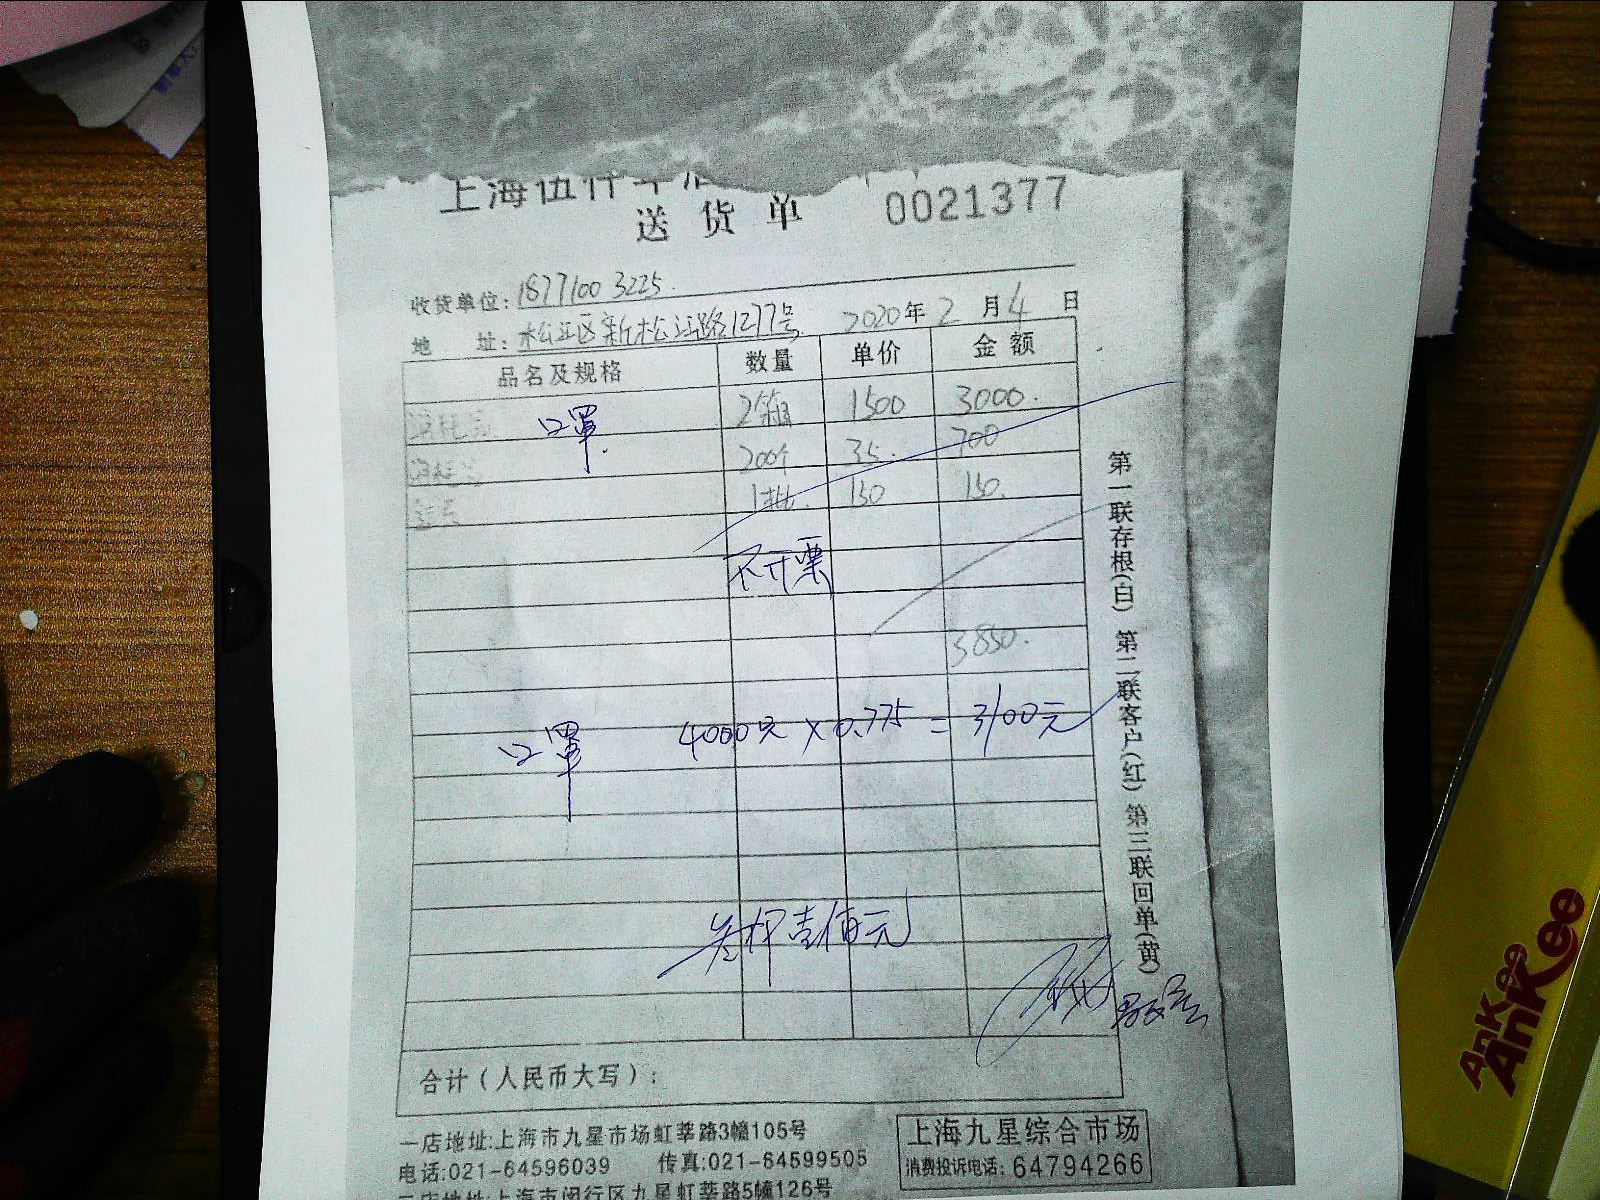 上海伍仟年
送货单 0021377
收货单位: 18771003225.
地 址: 松江区新松江路1277号 2020年2月4日
品名及规格 数量 单价 金额
口罩 2箱 1500 3000.
200个 35. 700
1批. 150 150.
不开票
3850.
口罩 4000只 × 0.775 = 3100元
叁仟壹佰元
合计(人民币大写):
一店地址:上海市九星市场虹莘路3幢105号
电话:021-64596039 传真:021-64599505
二店地址:上海市闵行区九星虹莘路5幢126号
上海九星综合市场
消费投诉电话:64794266
第一联存根(白) 第二联客户(红) 第三联回单(黄)
AnKee
AnKee